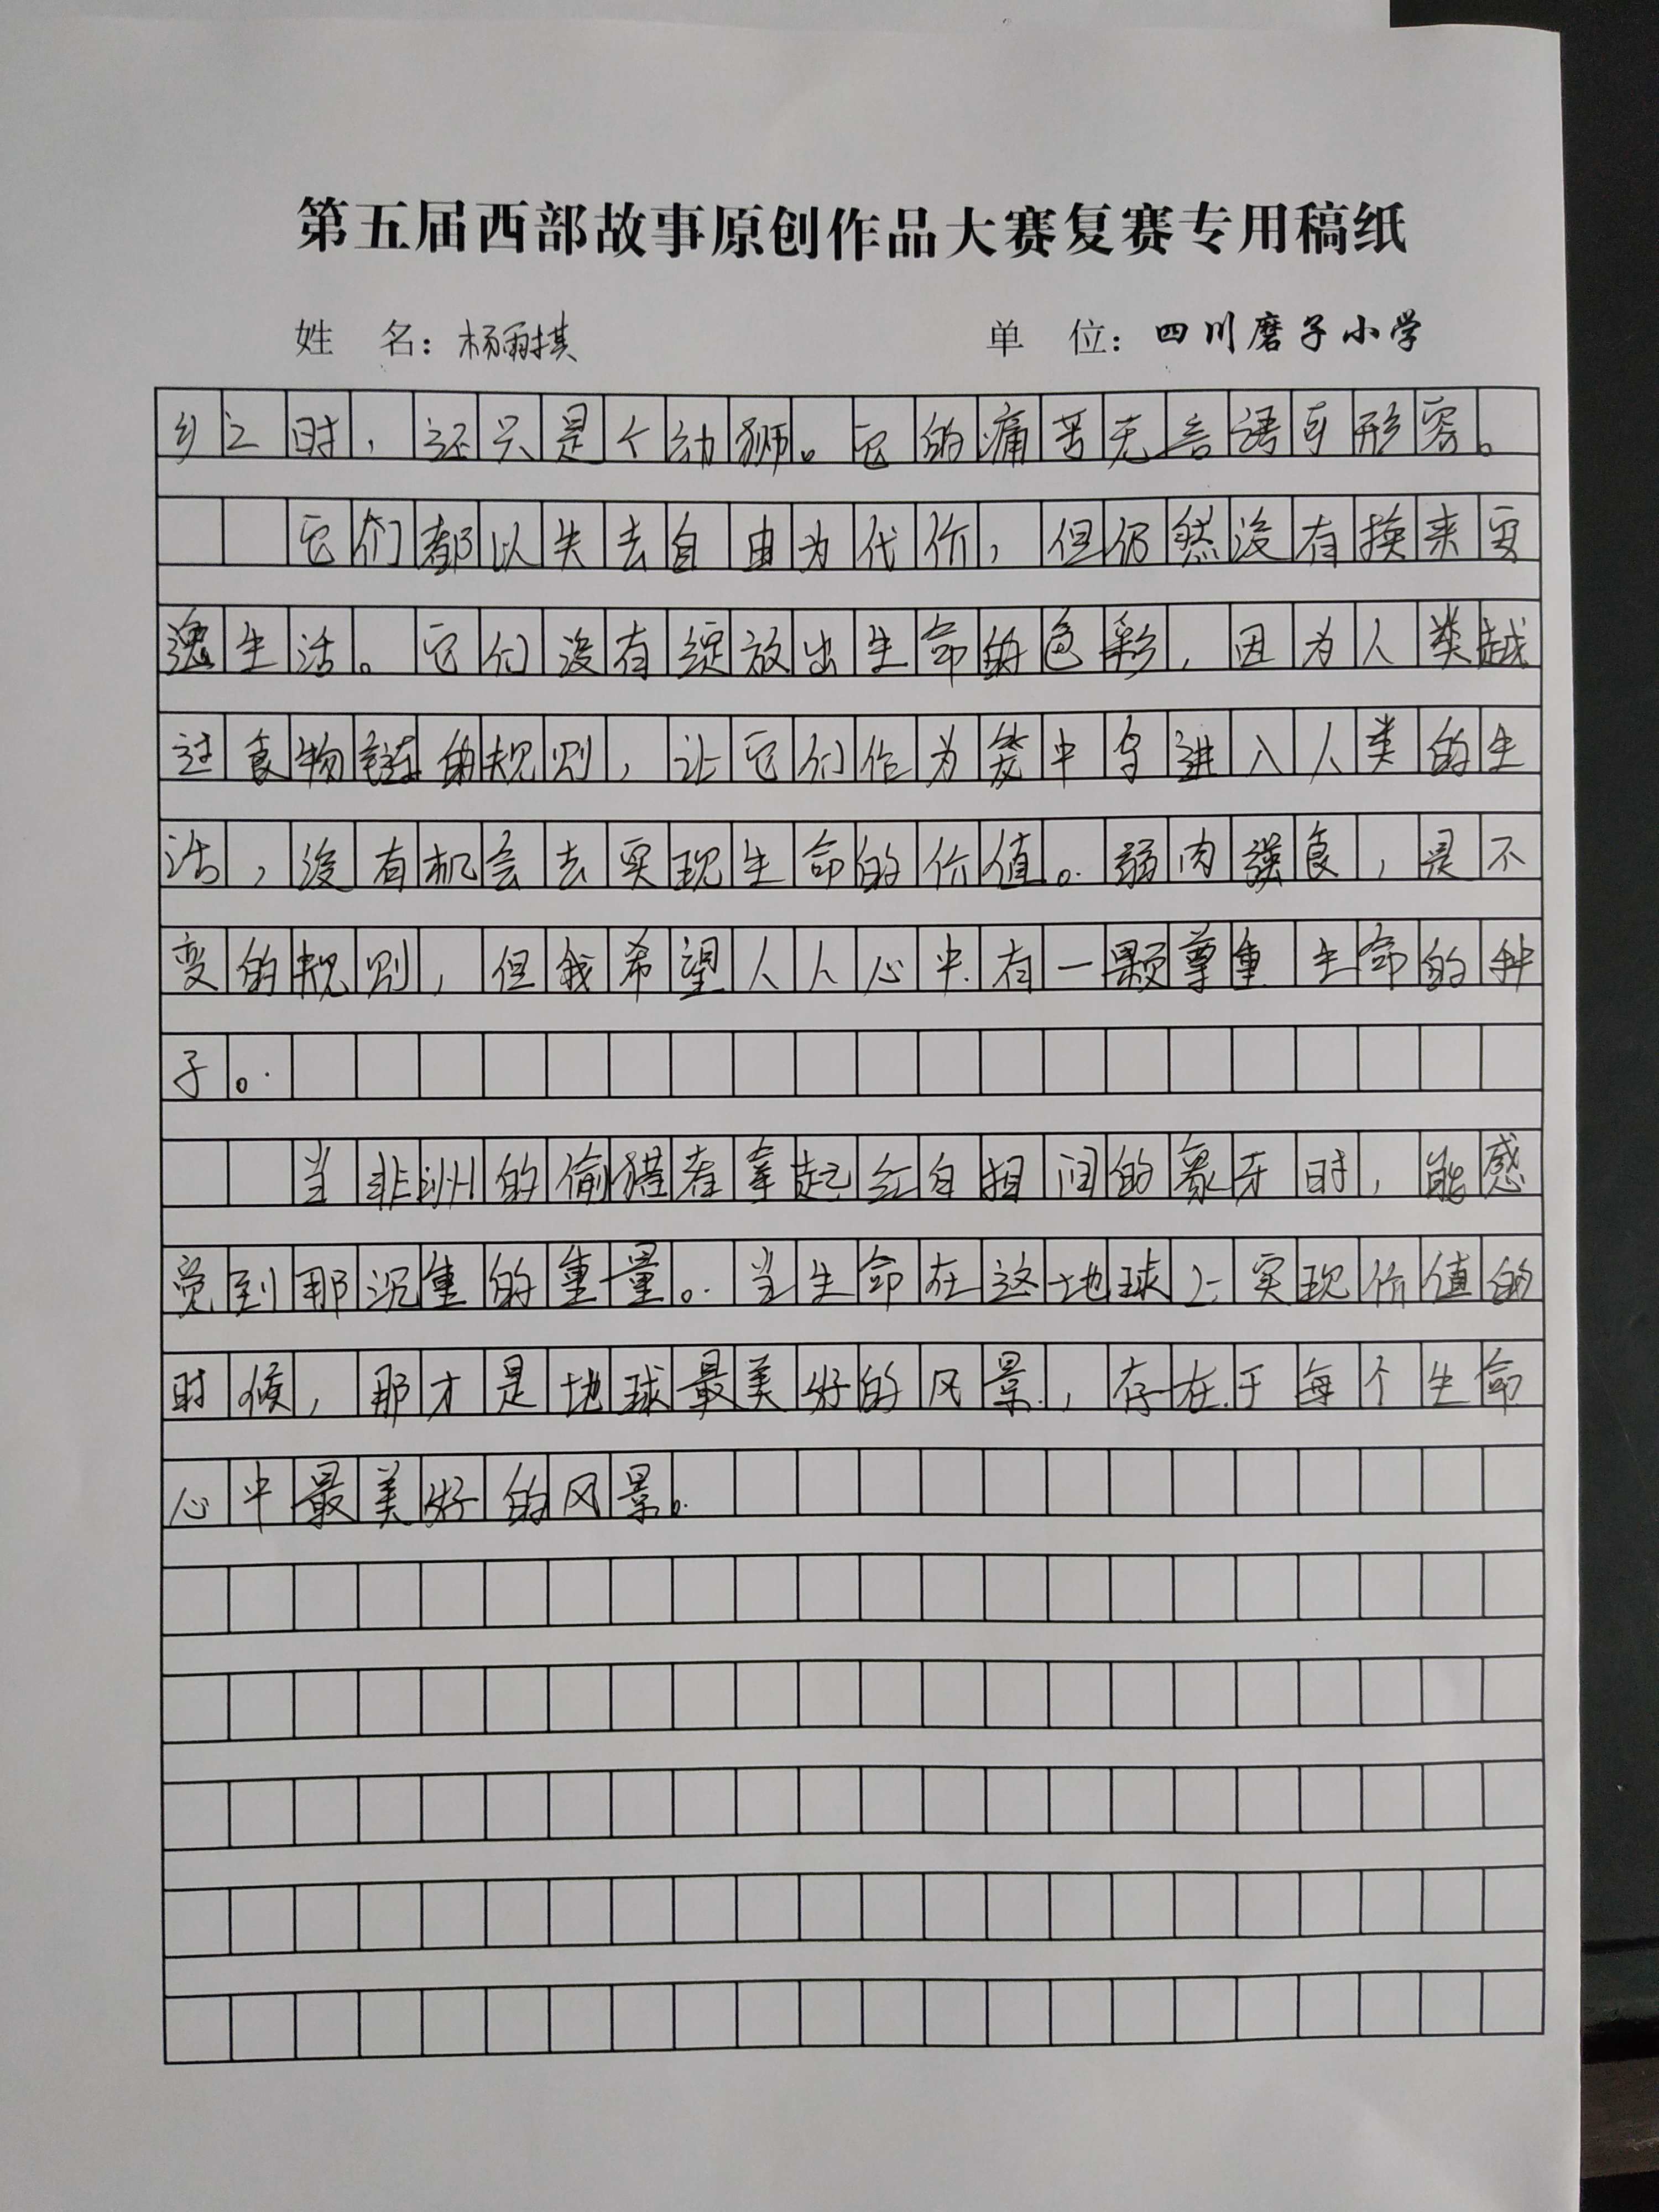 第五届西部故事原创作品大赛复赛专用稿纸
姓 名：杨雨棋 单 位：四川磨子小学
乡之时，还只是个幼狮。它的痛苦无言语可形容。
它们都以失去自由为代价，但仍然没有换来安
逸生活。它们没有绽放出生命的色彩，因为人类越
过食物链的规则，让它们作为笼中鸟进入人类的生
活，没有机会去实现生命的价值。弱肉强食，是不
变的规则，但我希望人人心中有一颗尊重生命的种
子。
当非洲的偷猎者拿起红白相间的象牙时，能感
觉到那沉重的重量。当生命在这地球上实现价值的
时候，那才是地球最美好的风景，存在于每个生命
心中最美好的风景。